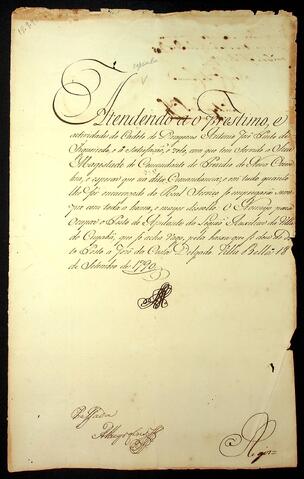 Attendendo a o Prestimo, e
actividade do Cadete de Dragoens Antonio José Pinto de
Figueiredo, e á satisfação, e zelo, com que tem servido a Sua
Magestade de Commandante do Prezidio de Nova Coim-
bra, e esperar que na dita Commandancia, e em tudo quanto
lhe for encarregado do Real Serviço se empregará sem-
pre com toda a honra, e
ocupar o Posto de Ajudante da Legião Auxiliar da Villa
do Cuyabá, que se acha vago, pela baixa que se deu do di-
to Posto a José da Costa Delgado. Villa Bella 18
de Setembro de 1790
Passada
Regda